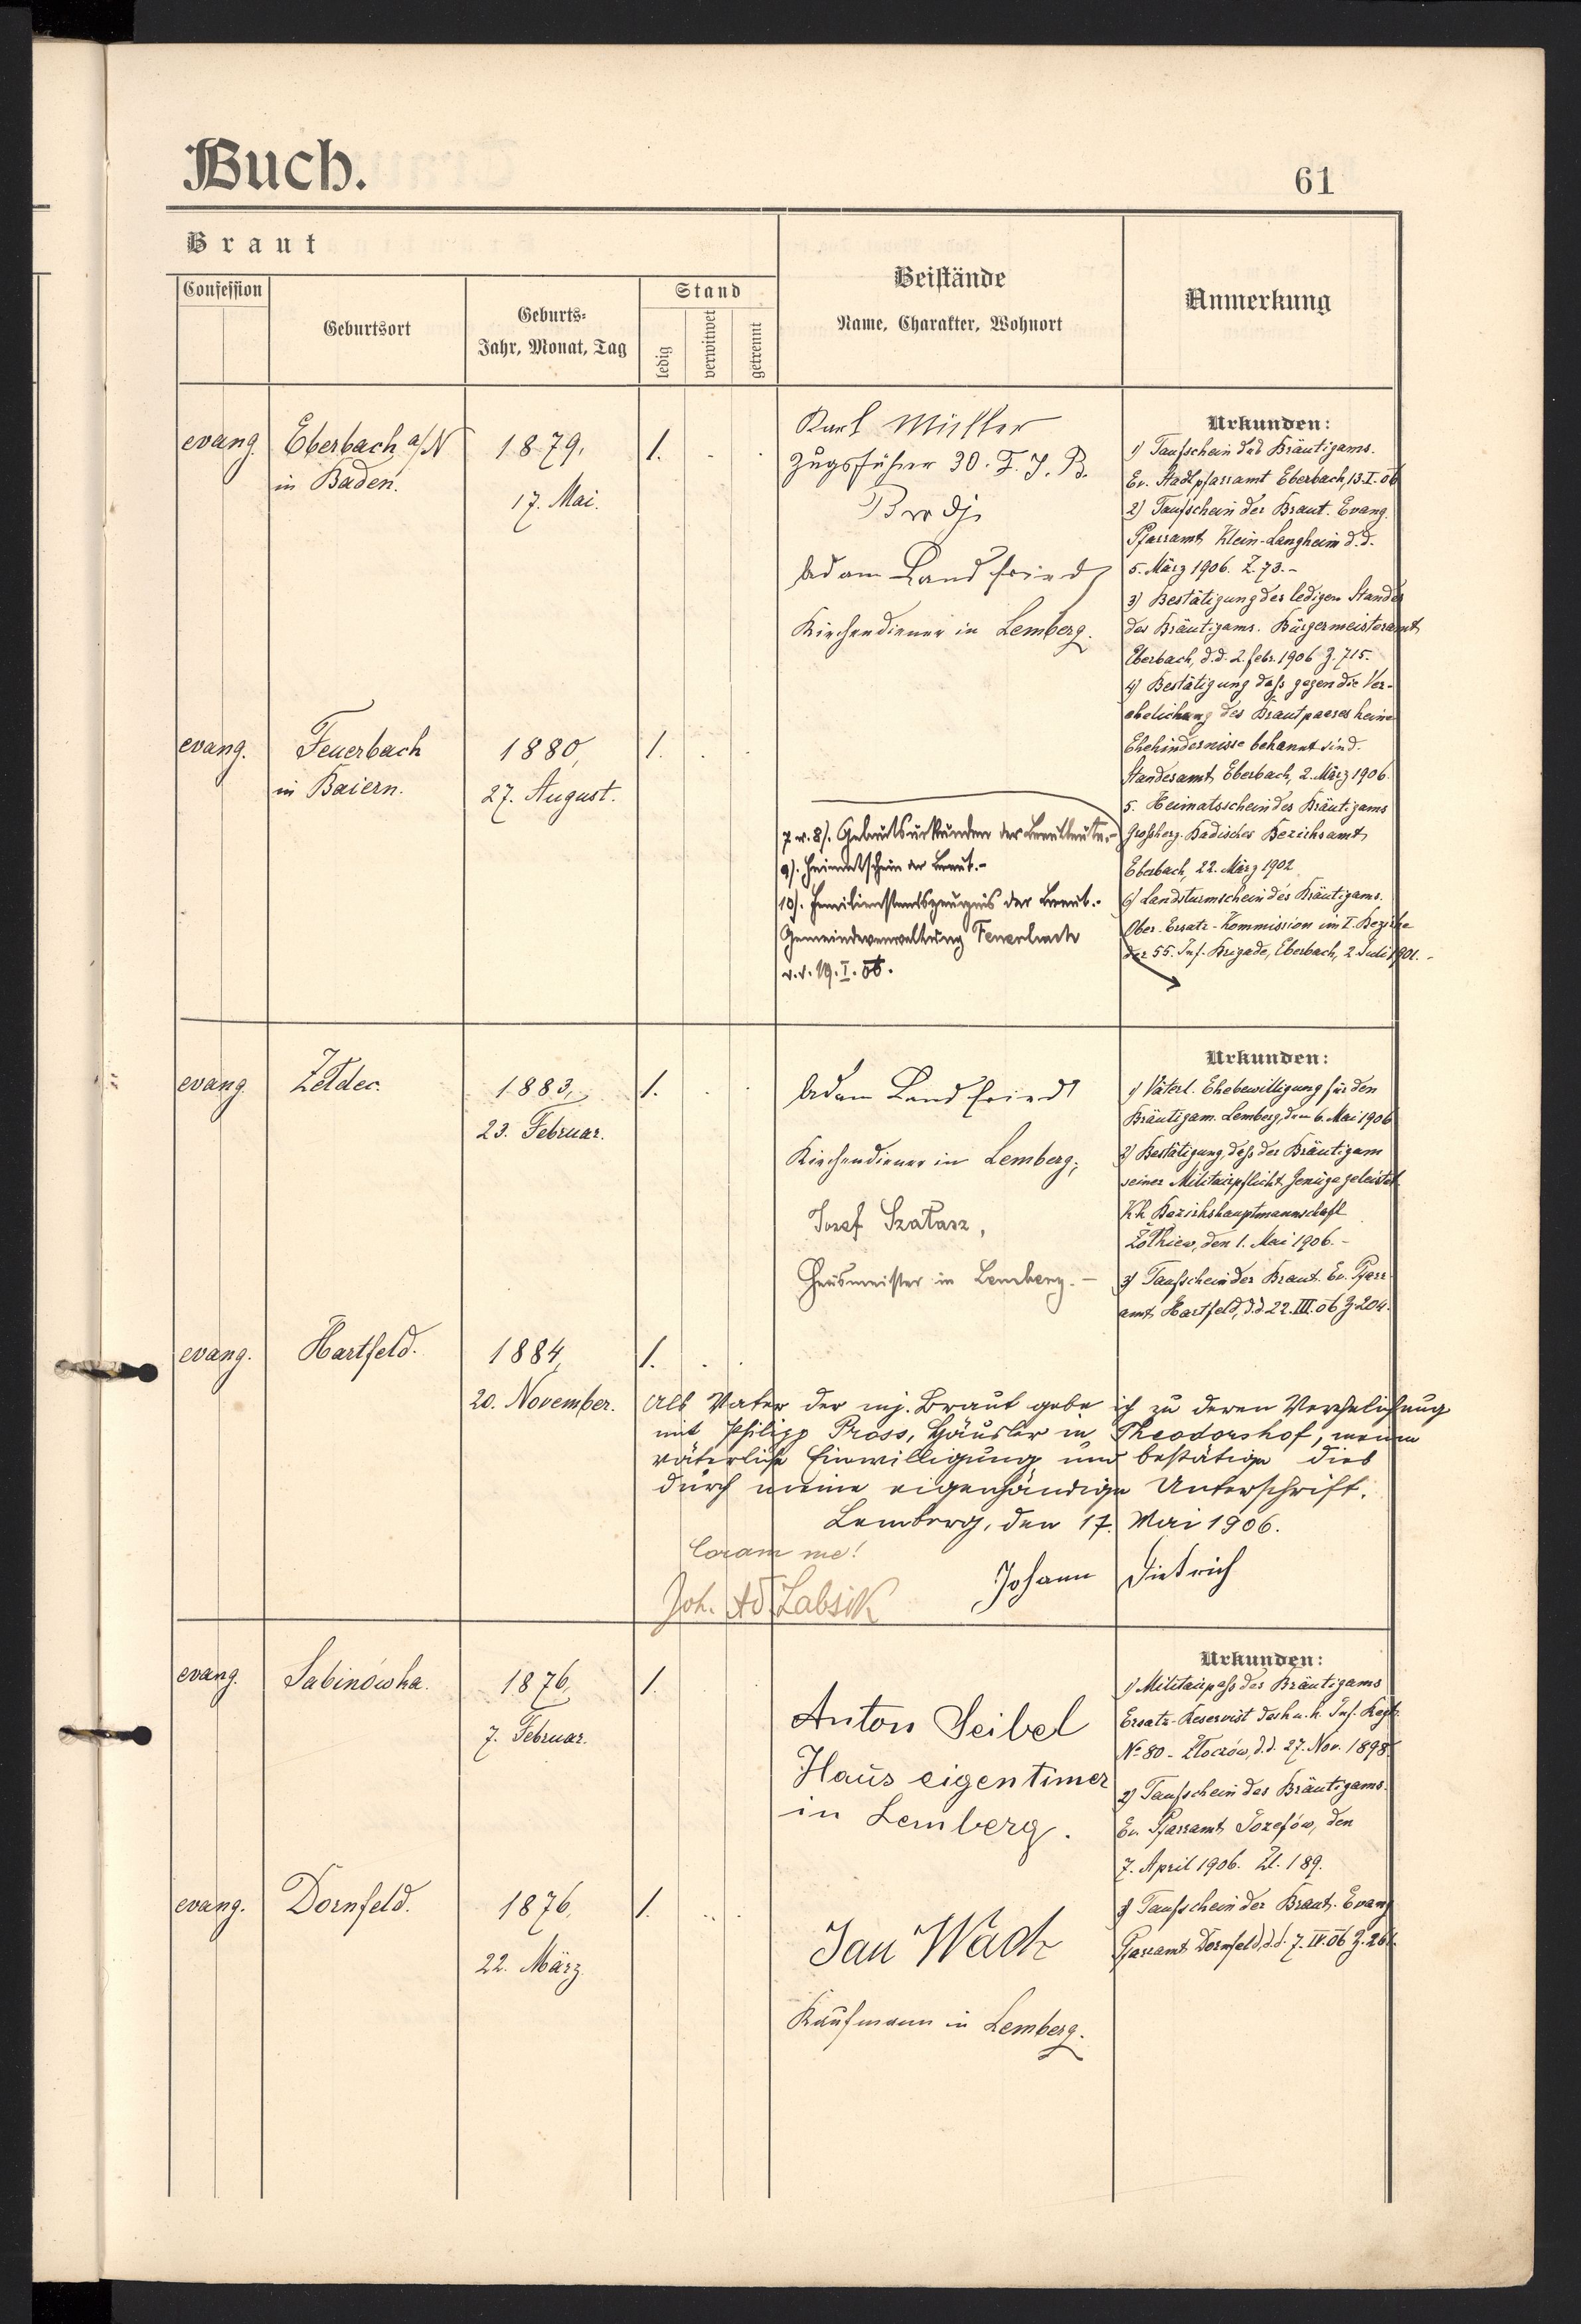 Buch.
61
Braut
Confession
Geburtsort
Geburts-
Jahr, Monat, Tag
Stand
ledig
verwitwet
getrennt
Beistände
Name, Charakter, Wohnort
Anmerkung
evang.
Eberbach a/N
in Baden.
1879,
17. Mai.
1.
Karl Müller
Zugsführer 30. F. J. B.
Brody
Adam Landfried
Kirchendiener in Lemberg.
Urkunden:
1) Taufschein des Bräutigams.
Ev. Stadtpfarramt Eberbach, 13.I.06
2) Taufschein der Braut. Evang.
Pfarramt Klein-Langheim d.d.
5. März 1906. Z. 73.-
3) Bestätigung des ledigen Standes
des Bräutigams. Bürgermeisteramt
Eberbach, d.d. 2. febr. 1906 Z. 715.
4) Bestätigung daß gegen die Ver-
ehelichung des Brautpaares keine
Ehehindernisse bekannt sind.
Standesamt Eberbach, 2. März 1906.
5. Heimatsschein des Bräutigams
Großherz. Badisches Bezirksamt
Eberbach, 22. März 1902
6) Landsturmschein des Bräutigams.
Ober-Ersatz-Kommission im I. Bezirke
der 55. Inf. Brigade, Eberbach, 2. Juli 1901.-
evang.
Feuerbach
in Baiern.
1880,
27. August.
1.
7 u. 8). Geburtsurkunden der Brautleute.-
9). Heimatschein der Braut.-
10). Familienstandszeugnis der Braut.-
Gemeindeverwaltung Feuerbach
d.d. 19. I. 06.
evang.
Żełdec.
1883,
23. Februar.
1.
Adam Landfried
Kirchendiener in Lemberg;
Josef Szałasz,
Hausmeister in Lemberg.-
Urkunden:
1) Väterl. Ehebewilligung für den
Bräutigam. Lemberg, den 6. Mai 1906
2) Bestätigung, daß der Bräutigam
seiner Militairpflicht Genüge geleistet
K.k. Bezirkshauptmannschaft
Żółkiew, den 1. Mai 1906.-
3) Taufschein der Braut. Ev. Pfarr-
amt Hartfeld, d.d. 22. III. 06 Z. 204.
evang.
Hartfeld.
1884,
20. November.
1.
Als Vater der mj. Braut gebe ich zu deren Verehelichung
mit Philipp Pross, Häusler in Theodorshof, meine
väterliche Einwilligung und bestätige dies
durch meine eigenhändige Unterschrift.
Lemberg, den 17. Mai 1906.
Coram me!
Johann Dietrich
Joh. Labsik
evang.
Sabinówka.
1876,
7. Februar.
1.
Anton Seibel
Haus eigentimer
in Lemberg.
Urkunden:
1) Militairpaß des Bräutigams
Ersatz-Reservist des k.u.k. Inf. Regts
No 80 - Złoczów, d.d. 27. Nov. 1898
2) Taufschein des Bräutigams.
Ev. Pfarramt Józefów, den
7. April 1906. Zl. 189.
3) Taufschein der Braut. Evang
Pfarramt Dornfeld, d.d. 7. IV. 06
evang.
Dornfeld.
1876,
22. März.
1.
Jan Wach
Kaufmann in Lemberg.